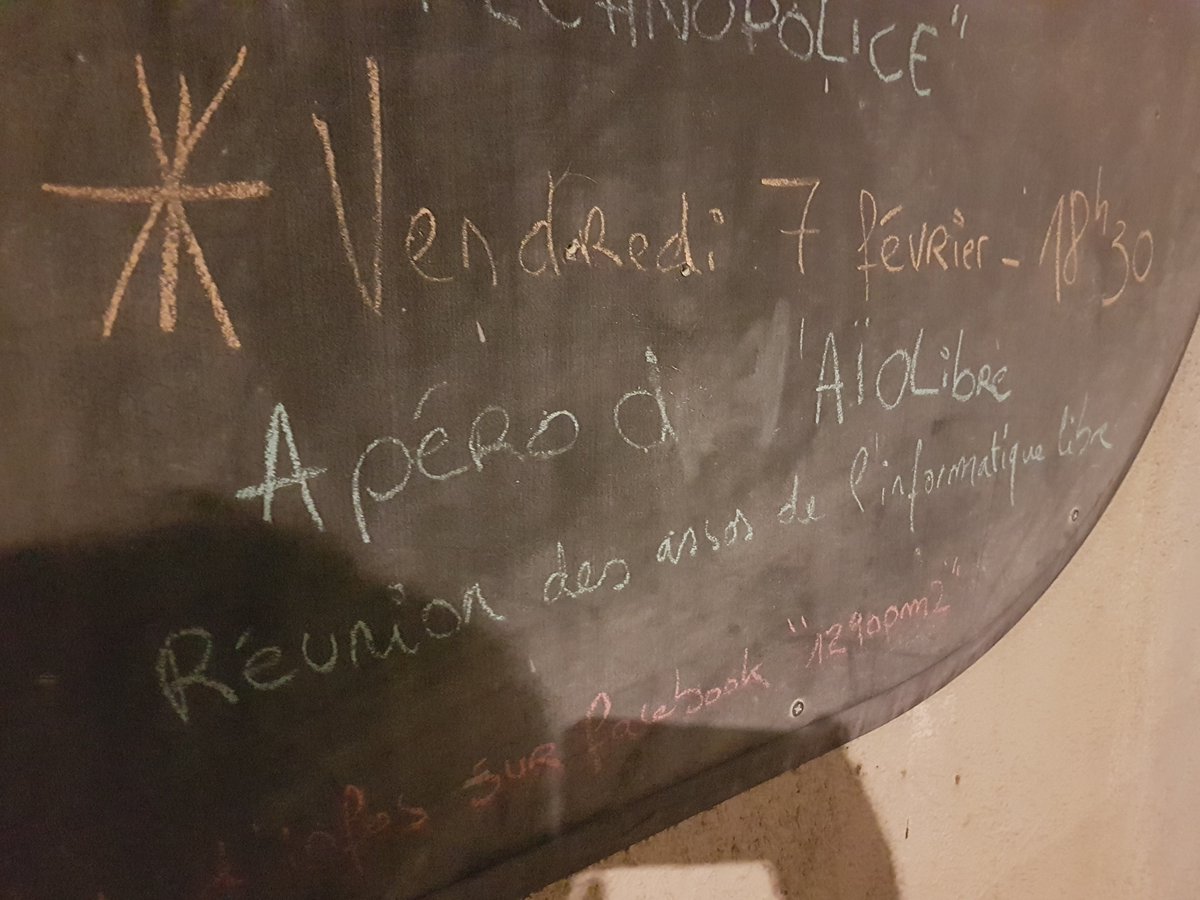 TECHNOPOLICE"
* Vendredi 7 février - 18h30
Apéro d'AïOLibre
Réunion des assos de l'informatique libre
+ infos sur facebook "1290pm2"